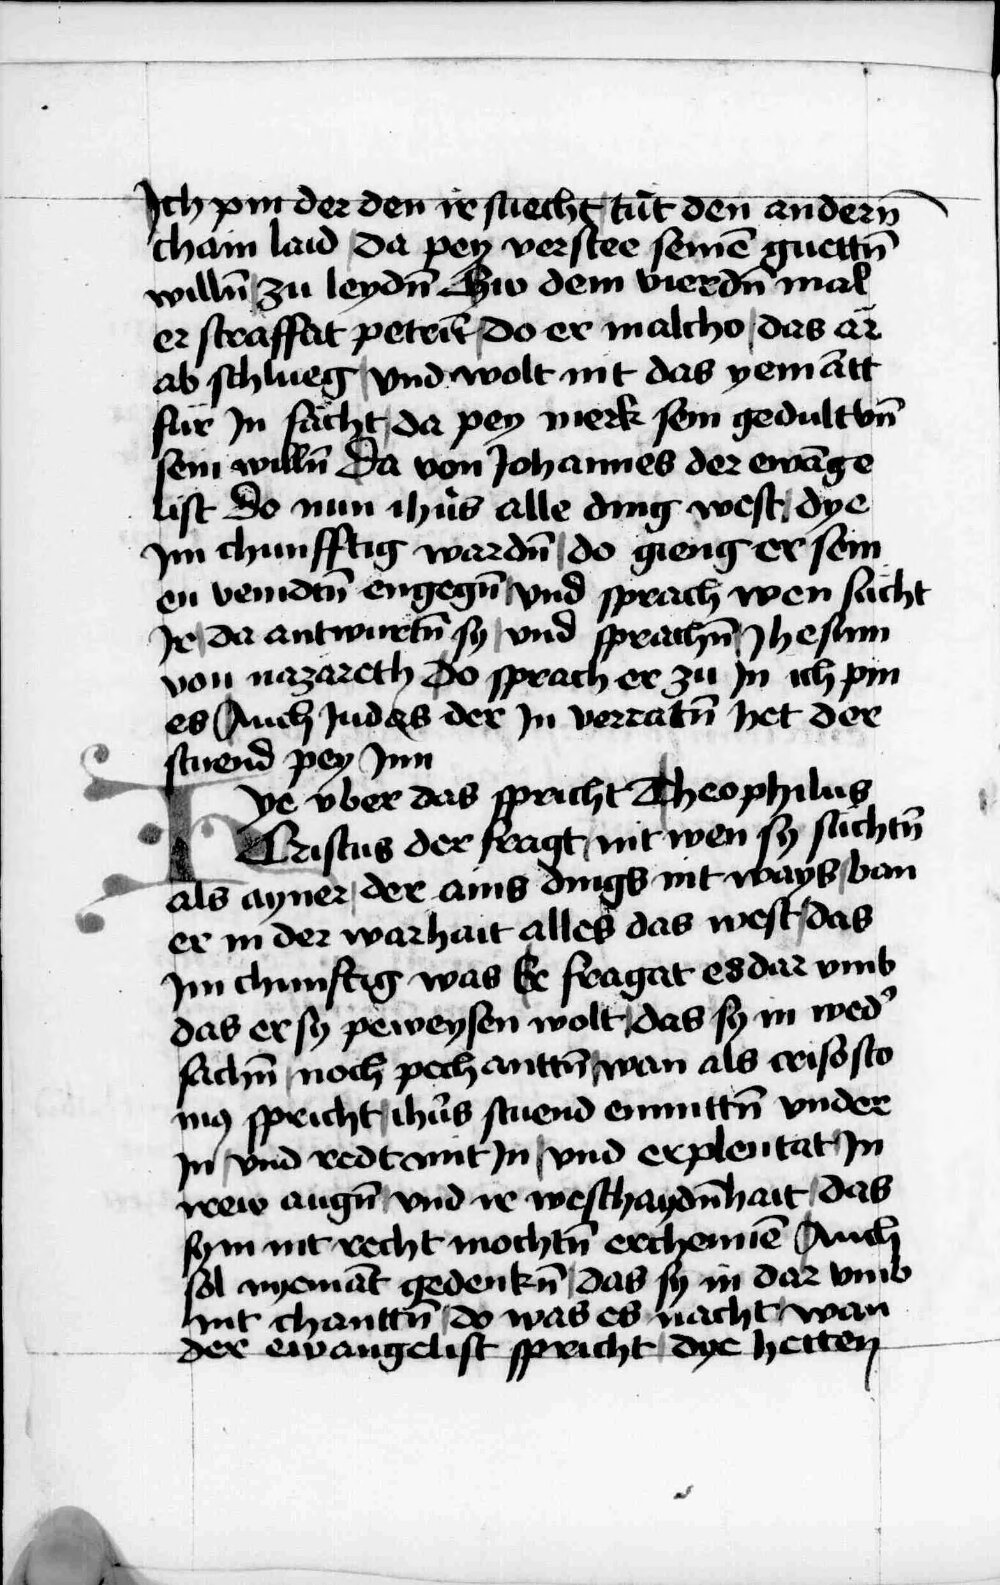 Ich pin der den ir suecht tut den andern̄
chain laid / da pey verstee seinē guettn̄
willn̄ / zu leydn̄ Zw dem vierdn̄ mal
er straffat petrū / do er malcho / das ar
ab schlueg / vnd wolt nit das yemātt
für In fächt / da pey merk sein gedult vn̄
sein willn̄ Da von Johannes der ewāge
list Do nun ihūs alle ding west / dye
Im chunfftig wardn̄ / do gieng er sein
en veindtn̄ engegn̄ / vnd sprach wen sücht
Ir / da antwurtn̄ sy / vnd sprachn̄ Jhesum
von nazareth Do sprach er zu In ich pin
es Auch Judas der In verratn̄ het der
stuend pey Inn
Hye vber das spricht Theophilus
Cristus der fragt / nit wen sy suchtn̄
als ayner / der ains dings nit ways / van
er in der warhait alles das west / das
Im chunftig was Er fragat es dar vmb
das er sy peweysen wolt / das sy in wed᾽
sachn̄ / noch pechanttn̄ / wan als crisosto
mꝯ spricht / ihūs stuend enmittn̄ vnder
In / vnd redt mit In / vnd erplentat In
irew augn̄ / vnd ir weschaydn̄hait / das
sy in nit recht mochtn̄ erchennē Auch
sol nyemāt gedenkn̄ / das sy in dar vmb
nit chanttn̄ / do was es nacht / wan
der ewangelist spricht / dye hetten